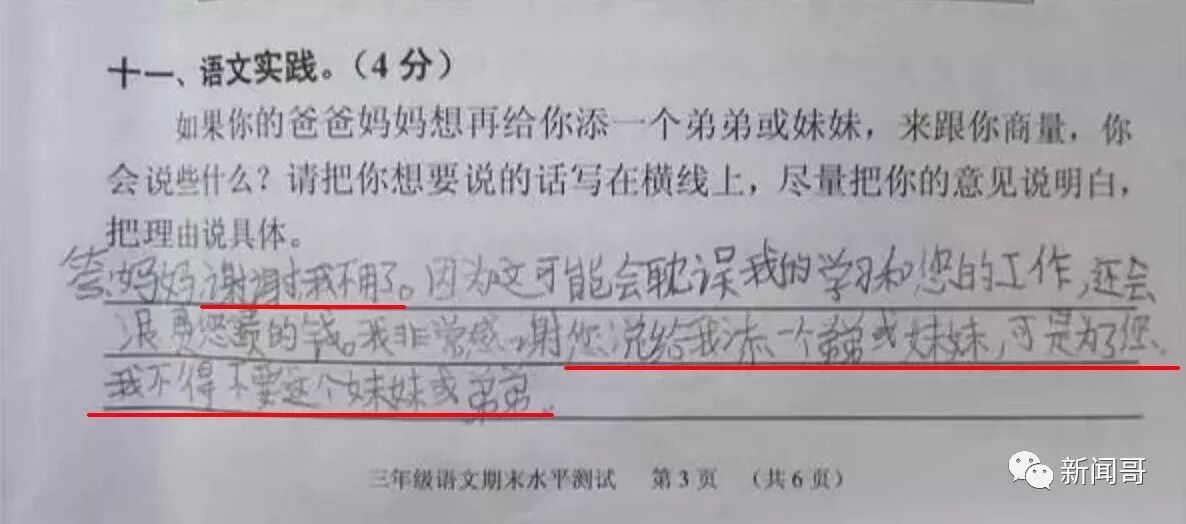 十一、语文实践。(4分)
如果你的爸爸妈妈想再给你添一个弟弟或妹妹,来跟你商量,你
会说些什么?请把你想要说的话写在横线上,尽量把你的意见说明白,
把理由说具体。
答:妈妈谢谢,我不用了。因为这可能会耽误我的学习和您的工作,还会
浪费您的钱。我非常感谢您说给我添一个弟弟或妹妹,可是为了您、
我不得不要这个妹妹或弟弟。
三年级语文期末水平测试 第3页 (共6页)
新闻哥